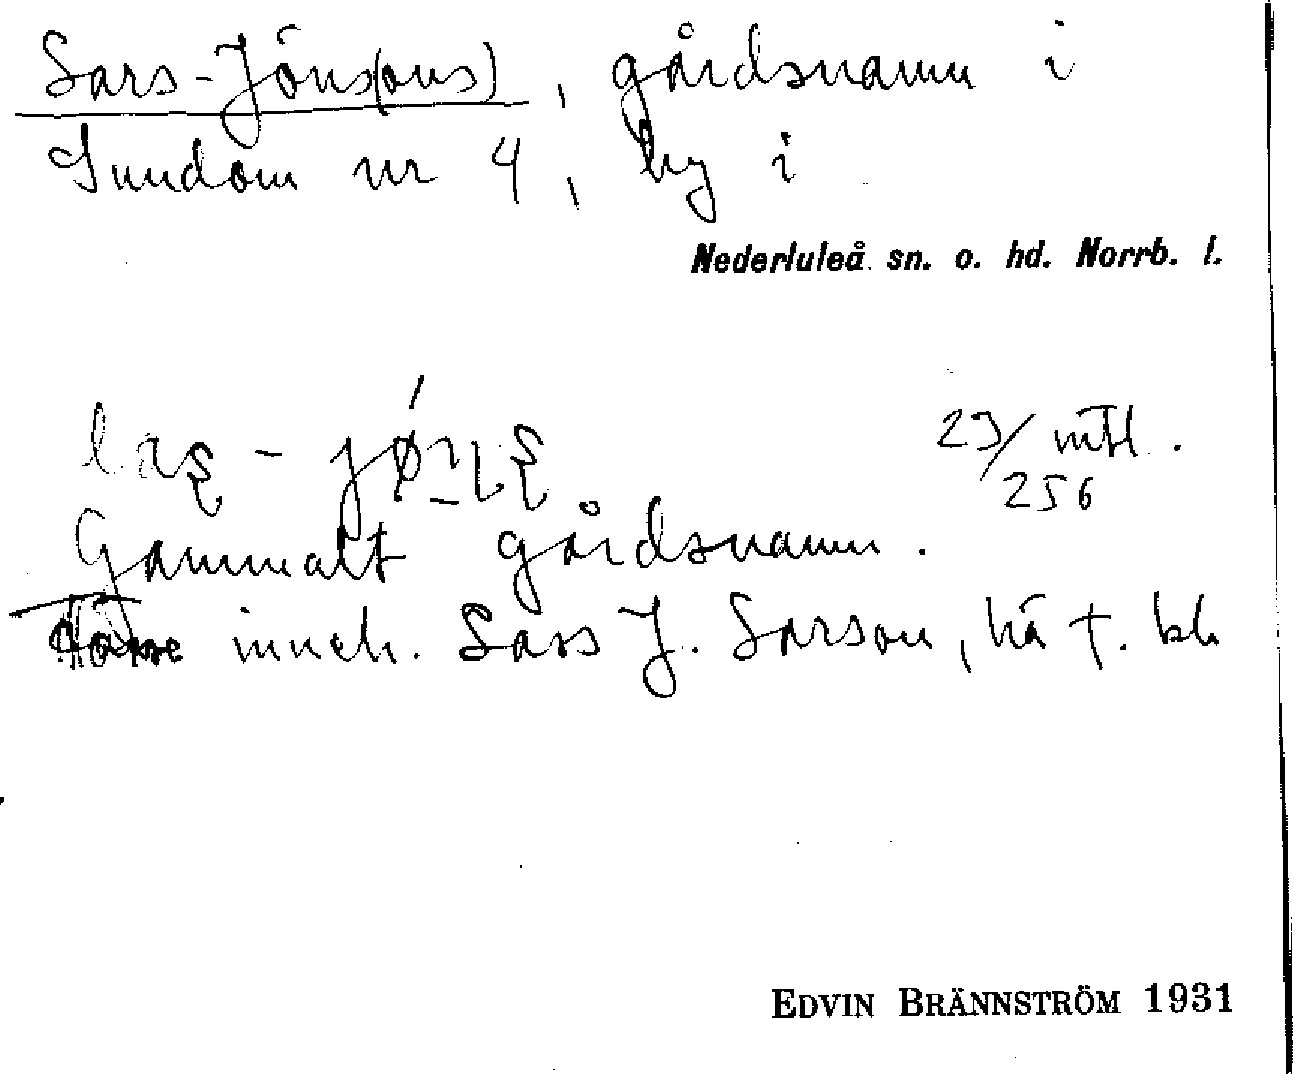 Lars-Jöns(ons), gårdsnamn i
Sundom nr 4, by i
Nederluleå sn. o. hd. Norrb. l.
23/256 mtl.
Gammalt gårdsnamn.
inneh. Lars J. Larson, nå †. bl.
EDVIN BRÄNNSTRÖM 1931